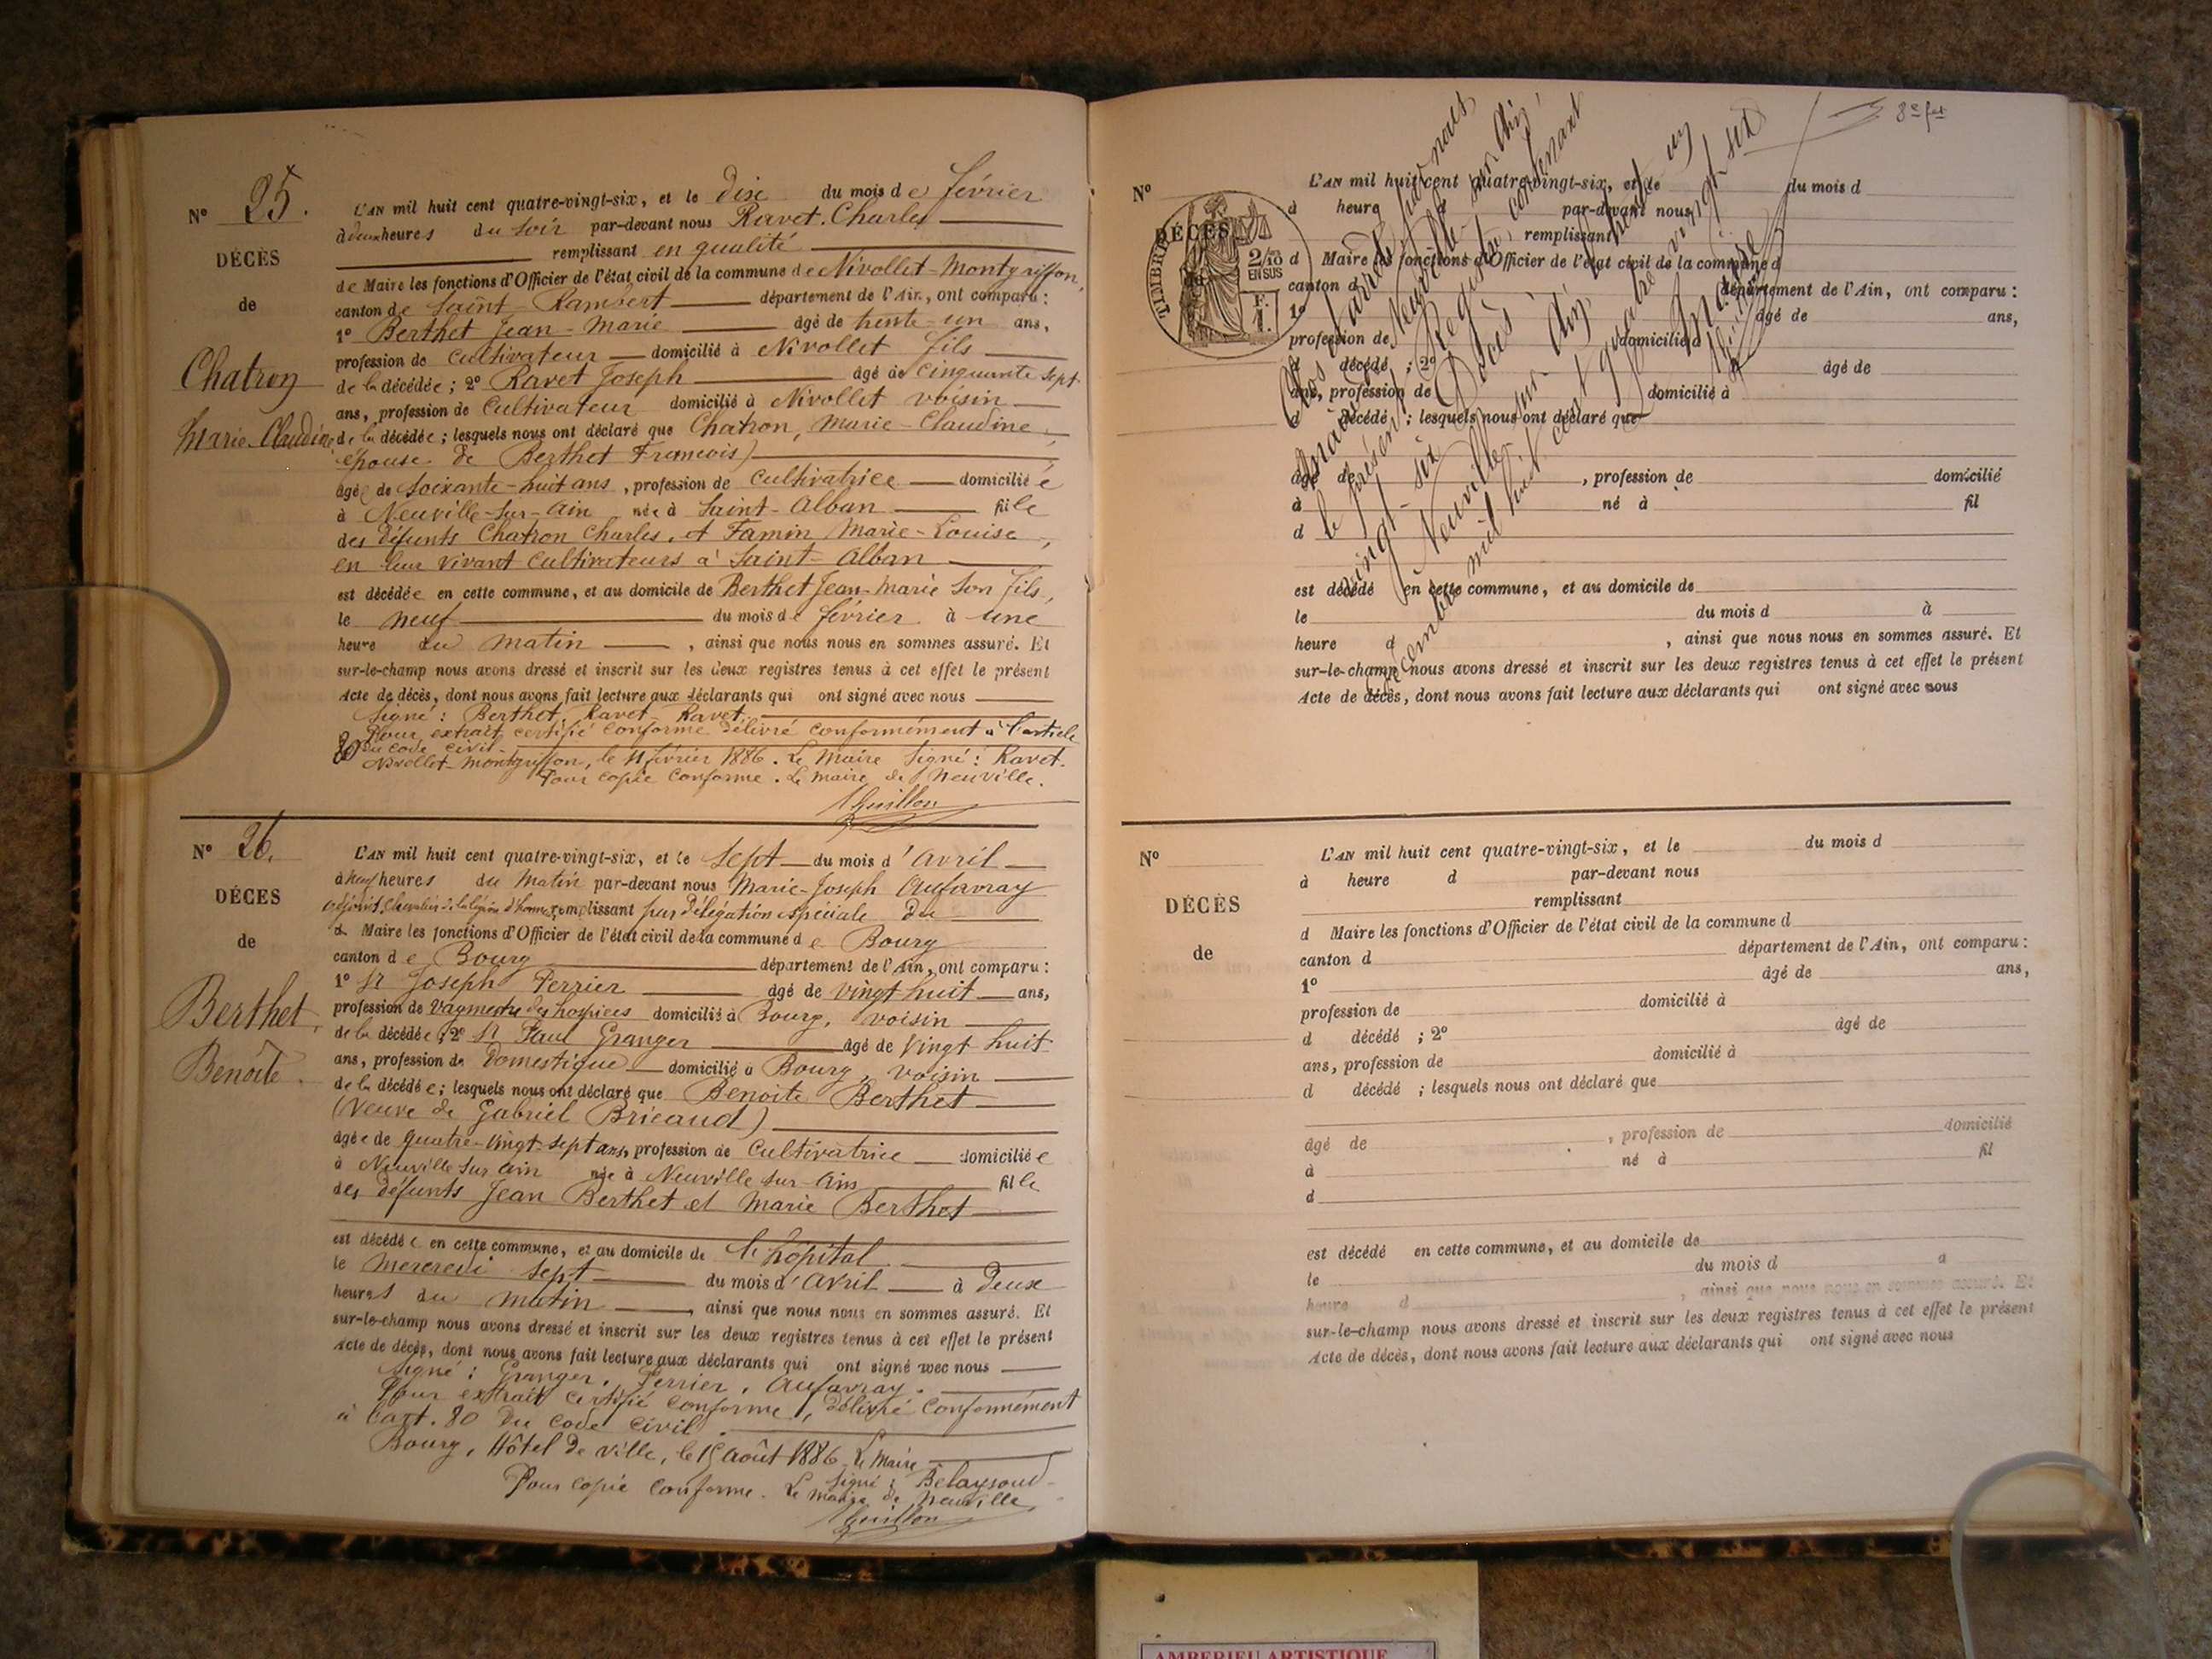 Nº 25.
DÉCÈS
de
Chatron
Marie-Claudine
L'AN mil huit cent quatre-vingt-six, et le dix du mois de février
à deux heures du soir par-devant nous Ravet Charles
remplissant en qualité
de Maire les fonctions d'Officier de l'état civil de la commune de Nivollet-Montgriffon,
canton de Saint-Rambert département de l'Ain, ont comparu :
1º Berthet Jean-Marie âgé de trente-un ans,
profession de cultivateur domicilié à Nivollet fils
de la décédée ; 2º Ravet Joseph âgé de cinquante sept
ans, profession de cultivateur domicilié à Nivollet voisin
de la décédée ; lesquels nous ont déclaré que Chatron, Marie-Claudine,
épouse de Berthet François)
âgée de soixante-huit ans, profession de cultivatrice domiciliée
à Neuville-sur-Ain née à Saint-Alban fille
des défunts Chatron Charles, et Famin Marie-Louise,
en leur vivant cultivateurs à Saint-Alban
est décédée en cette commune, et au domicile de Berthet Jean-Marie son fils,
le neuf du mois de février à une
heure du matin, ainsi que nous nous en sommes assuré. Et
sur-le-champ nous avons dressé et inscrit sur les deux registres tenus à cet effet le présent
Acte de décès, dont nous avons fait lecture aux déclarants qui ont signé avec nous
Signé : Berthet, Ravet, Ravet.
Pour extrait certifié conforme délivré conformément à l'article
80 du code civil
Nivollet-Montgriffon, le 11 février 1886. Le Maire Signé : Ravet.
Pour copie conforme. Le maire de Neuville.
Guillon
Nº 26.
DÉCES
de
Berthet,
Benoîte.
L'AN mil huit cent quatre-vingt-six, et le sept du mois d'avril
à neuf heures du matin par-devant nous Marie-Joseph Aufavray
adjoint, chevalier de la légion d'honneur, remplissant par délégation spéciale du
d Maire les fonctions d'Officier de l'état civil de la commune de Bourg
canton de Bourg département de l'Ain, ont comparu :
1º Sr Joseph Perrier âgé de vingt huit ans,
profession de vaguemestre des hospices domicilié à Bourg, voisin
de la décédée ; 2º Sr Paul Granger âgé de vingt huit
ans, profession de domestique domicilié à Bourg, voisin
de la décédée ; lesquels nous ont déclaré que Benoite Berthet
(veuve de Gabriel Bricaud)
âgée de quatre-vingt-sept ans, profession de cultivatrice domiciliée
à Neuville sur Ain née à Neuville sur-Ain fille
des défunts Jean Berthet et Marie Berthet
est décédée en cette commune, et au domicile de l'hôpital
le mercredi sept du mois d'avril à deux
heures du matin, ainsi que nous nous en sommes assuré. Et
sur-le-champ nous avons dressé et inscrit sur les deux registres tenus à cet effet le présent
Acte de décès, dont nous avons fait lecture aux déclarants qui ont signé avec nous
Signé : Granger, Perrier, Aufavray.
Pour extrait certifié conforme, délivré conformément
à l'art. 80 du code civil.
Bourg, Hôtel de Ville, le 15 août 1886. Le Maire
Signé : Belaysoud
Pour copie conforme. Le maire de Neuville,
Guillon
8e fet
Nº
DÉCÈS
TIMBRE
2/10
EN SUS
Clos et arrêté par nous
maire de Neuville-sur-Ain,
le présent Registre, contenant
vingt-six Décès
Neuville sur Ain, le trente un
décembre mil huit cent quatre vingt six
Le Maire
L'AN mil huit cent quatre-vingt-six, et le du mois d
à heure d par-devant nous
remplissant
d Maire les fonctions d'Officier de l'état civil de la commune d
canton d département de l'Ain, ont comparu :
1º âgé de ans,
profession de domicilié à
d décédé ; 2º âgé de
ans, profession de domicilié à
d décédé ; lesquels nous ont déclaré que
âgé de , profession de domicilié
à né à fil
d
est décédé en cette commune, et au domicile de
le du mois d à
heure d , ainsi que nous nous en sommes assuré. Et
sur-le-champ nous avons dressé et inscrit sur les deux registres tenus à cet effet le présent
Acte de décès, dont nous avons fait lecture aux déclarants qui ont signé avec nous
Nº
DÉCÈS
de
L'AN mil huit cent quatre-vingt-six, et le du mois d
à heure d par-devant nous
remplissant
d Maire les fonctions d'Officier de l'état civil de la commune d
canton d département de l'Ain, ont comparu :
1º âgé de ans,
profession de domicilié à
d décédé ; 2º âgé de
ans, profession de domicilié à
d décédé ; lesquels nous ont déclaré que
âgé de , profession de domicilié
à né à fil
d
est décédé en cette commune, et au domicile de
le du mois d à
heure d , ainsi que nous nous en sommes assuré. Et
sur-le-champ nous avons dressé et inscrit sur les deux registres tenus à cet effet le présent
Acte de décès, dont nous avons fait lecture aux déclarants qui ont signé avec nous
AMBERIEU ARTISTIQUE